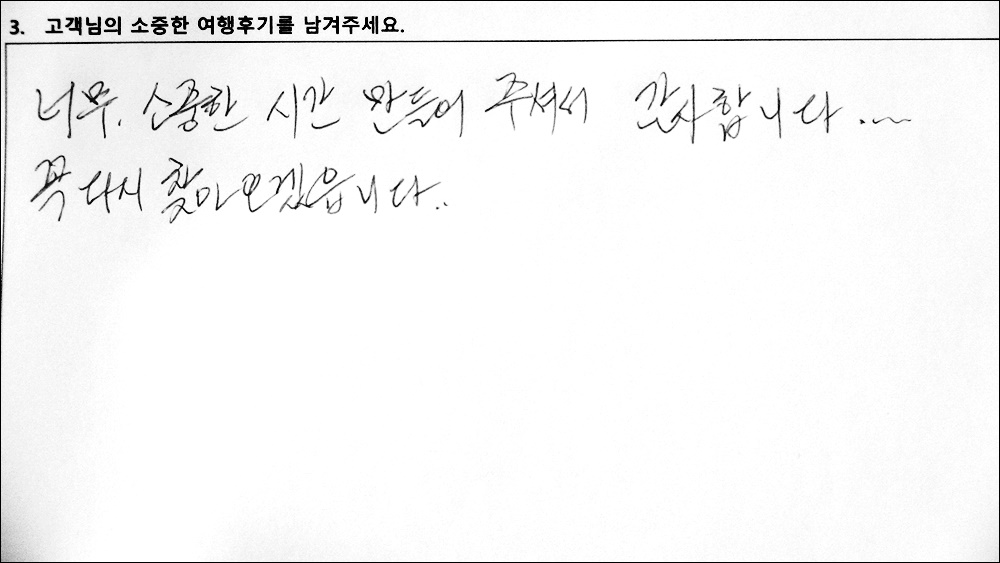 3. 고객님의 소중한 여행후기를 남겨주세요.
너무. 소중한 시간 만들어 주셔서 감사합니다.~
꼭 다시 찾아오겠읍니다..